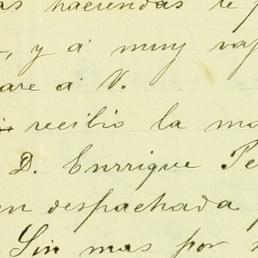 as haciendas
, y á muy
are á V.
recibio la
D. Enrrique Pe
en despachada
Sin mas por